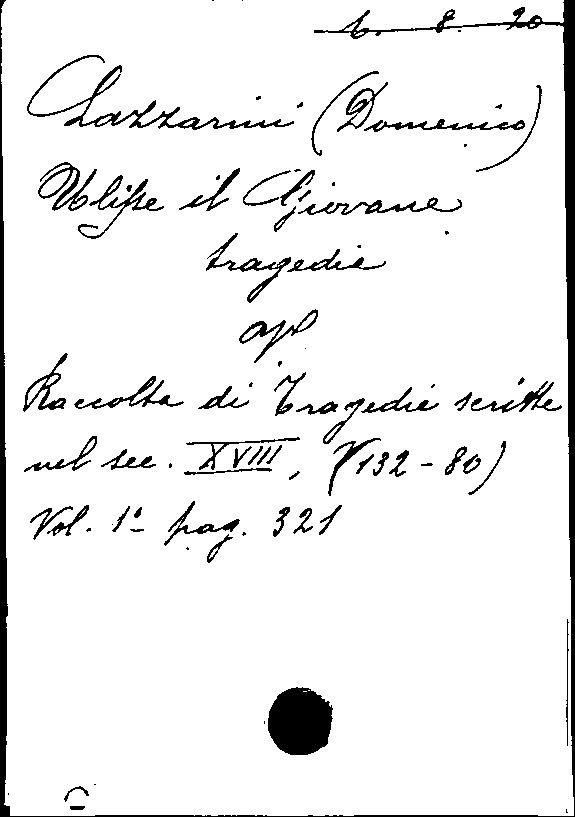 6. 8. 20
Lazzarini (Domenico)
Ulisse il Giovane
tragedia
ap
Raccolta di Tragedie scritte
nel sec. XVIII, (V 132-80)
Vol. 1º pag. 321